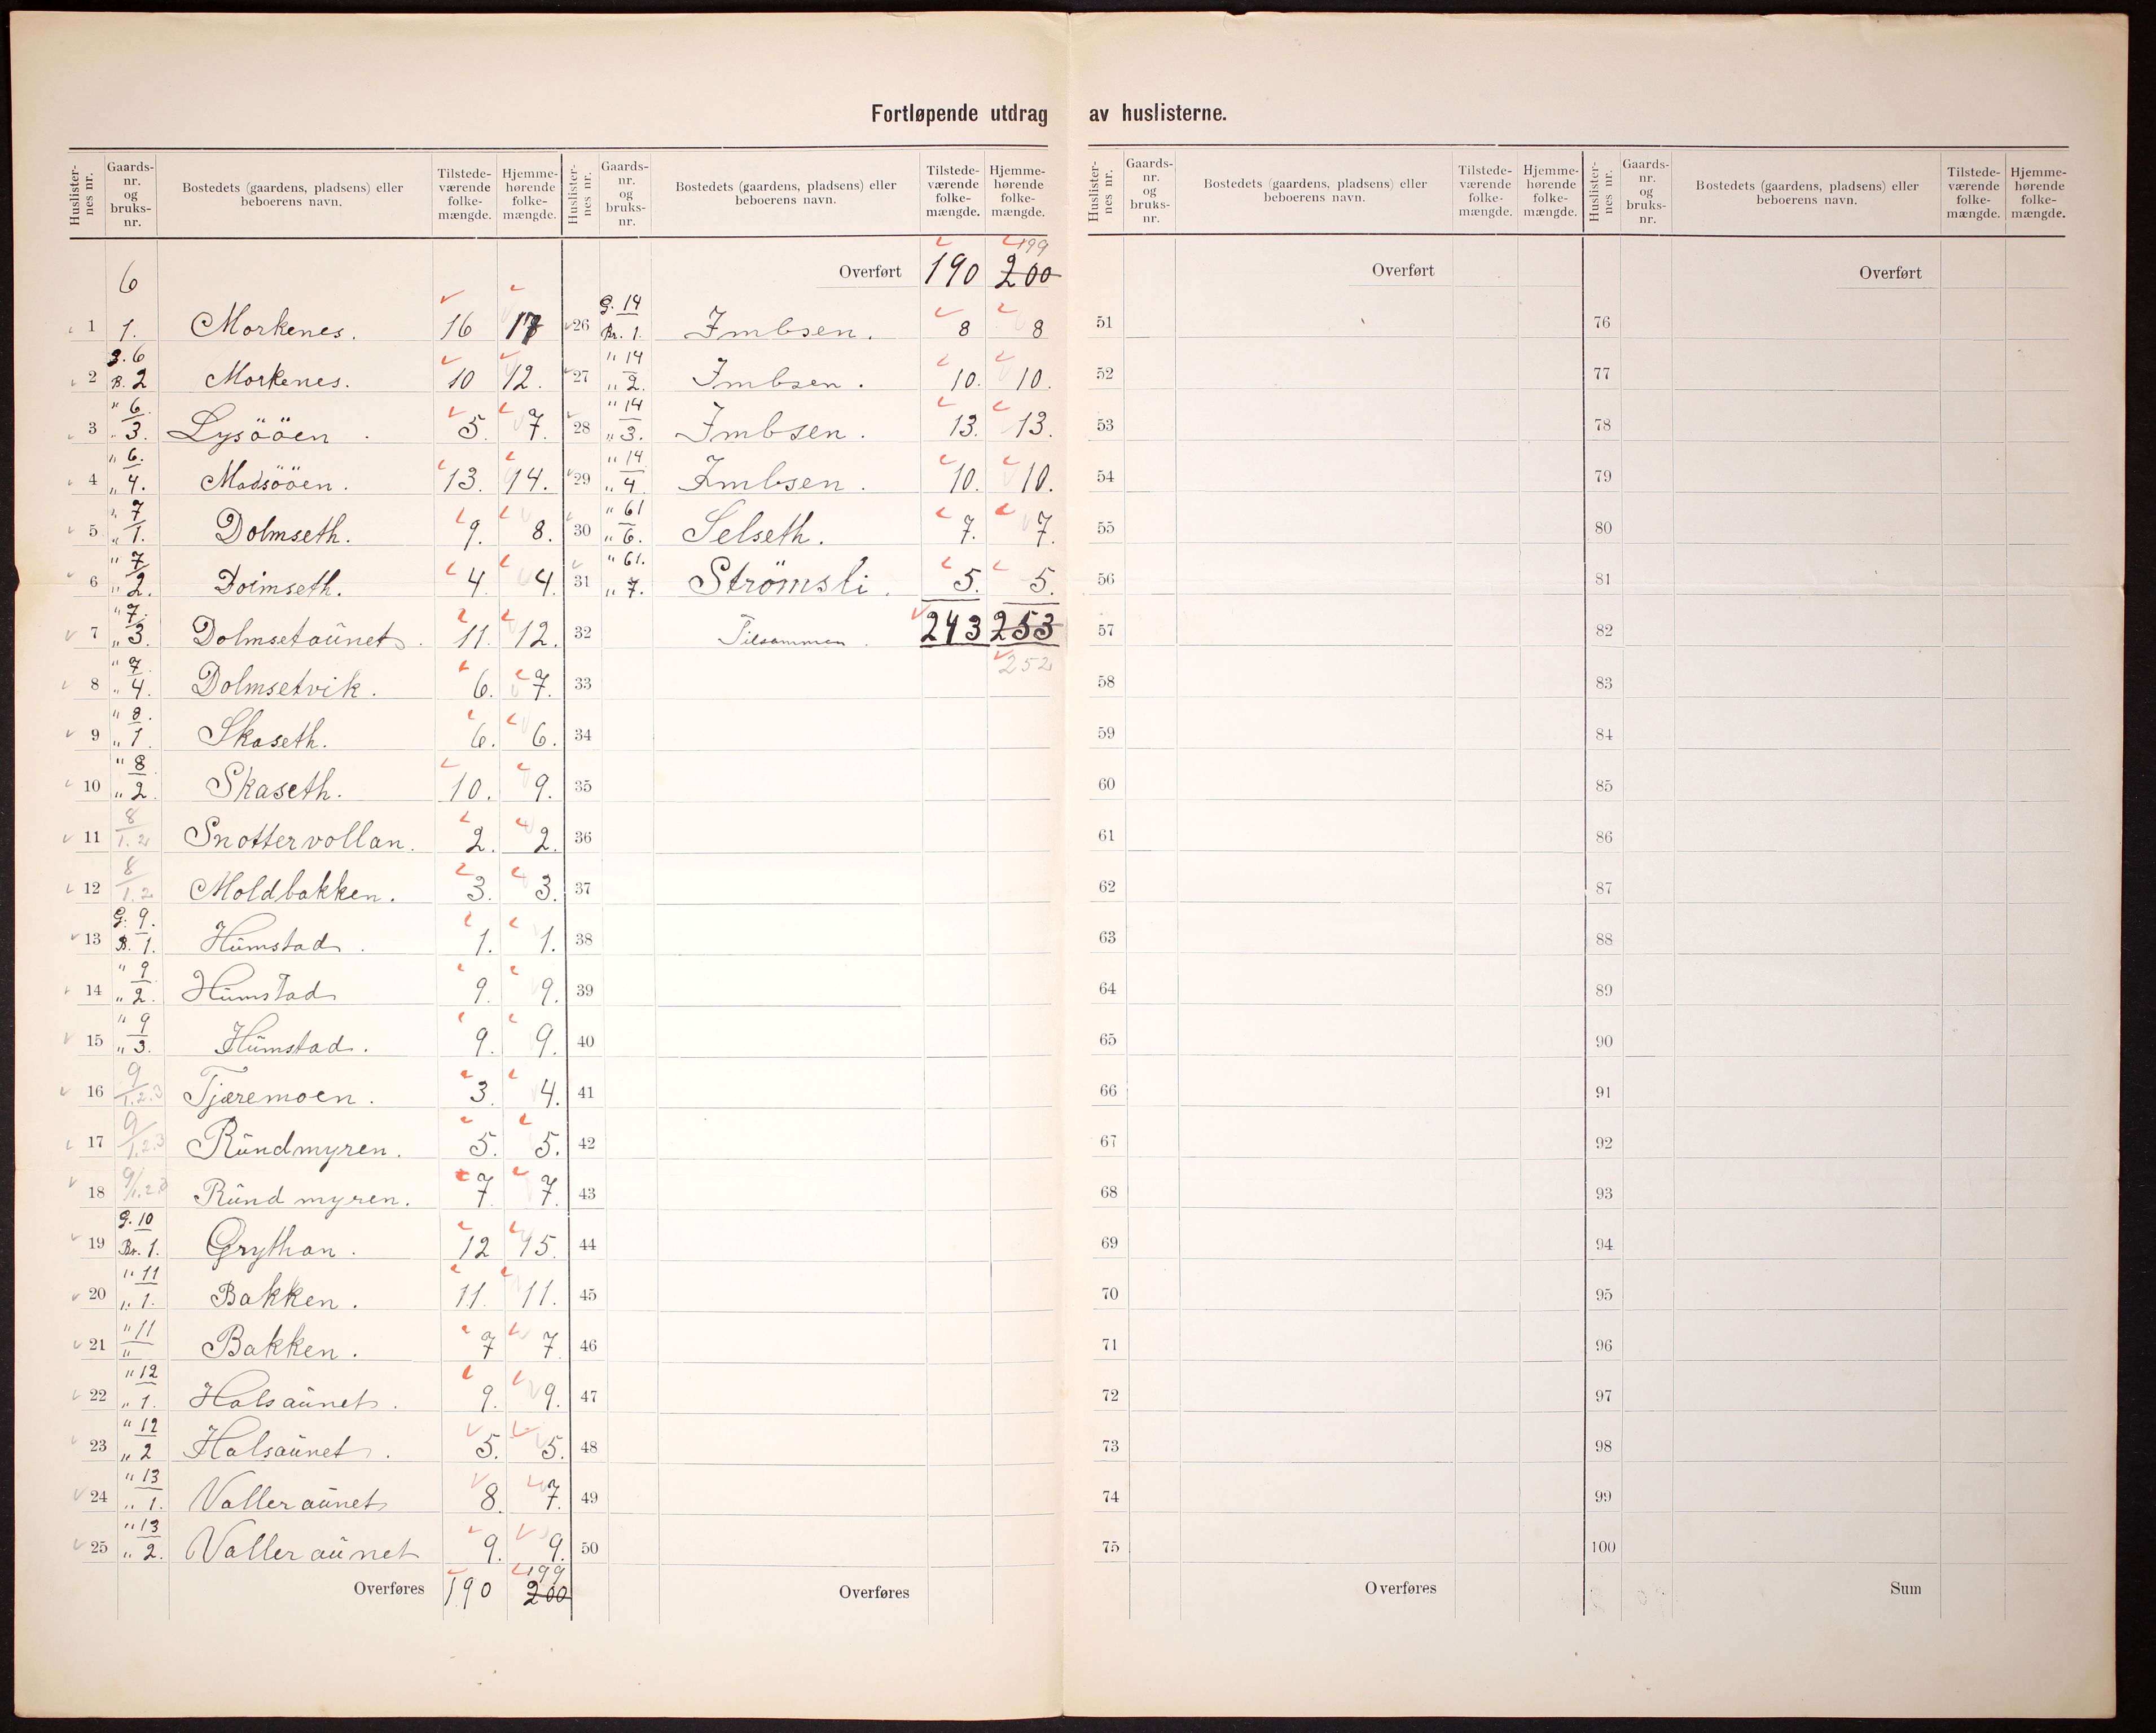 Fortløpende utdrag av huslisterne.
Huslister-nes nr. Gaards-nr. og bruks-nr. Bostedets (gaardens, pladsens) eller beboerens navn. Tilstede-værende folke-mængde. Hjemme-hørende folke-mængde.
6
1 1. Morkenes. 16 17
2 G. 6 B. 2 Morkenes. 10 12.
3 " 6. " 3. Lysööen. 5. 7.
4 " 6. " 4. Madsööen. 13. 14.
5 " 7 " 1. Dolmseth. 9. 8.
6 " 7 " 2. Dolmseth. 4. 4.
7 " 7. " 3. Dolmsetaunet. 11. 12.
8 " 7 " 4. Dolmsetvik. 6. 7.
9 " 8. " 1. Skaseth. 6. 6.
10 " 8 " 2. Skaseth. 10. 9.
11 8 1.2 Snottervollan. 2. 2.
12 8 1.2 Moldbakken. 3. 3.
13 G. 9. B. 1. Humstad. 1. 1.
14 " 9 " 2. Humstad 9. 9.
15 " 9 " 3. Humstad. 9. 9.
16 9 1.2.3 Tjæremoen. 3. 4.
17 9 1.2.3 Rundmyren. 5. 5.
18 9/1.2.3 Rundmyren. 7. 7.
19 G. 10 Br. 1. Grythan. 12 15.
20 " 11 " 1. Bakken. 11. 11.
21 " 11 " Bakken. 7 7.
22 " 12 " 1. Halsaunet. 9. 9.
23 " 12 " 2 Halsaunet. 5. 5.
24 " 13 " 1. Valleraunet 8. 7.
25 " 13 " 2. Valleraunet 9. 9.
Overføres 190 199 200
Huslister-nes nr. Gaards-nr. og bruks-nr. Bostedets (gaardens, pladsens) eller beboerens navn. Tilstede-værende folke-mængde. Hjemme-hørende folke-mængde.
Overført 190 199 200
26 G. 14 Br. 1. Imbsen. 8 8
27 " 14 " 2. Imbsen. 10. 10.
28 " 14 " 3. Imbsen. 13. 13.
29 " 14 " 4 Imbsen. 10. 10.
30 " 61 " 6. Selseth. 7. 7.
31 " 61. " 7. Strömsli. 5. 5.
32 Tilsammen. 243 253
252
33
34
35
36
37
38
39
40
41
42
43
44
45
46
47
48
49
50
Overføres
Huslister-nes nr. Gaards-nr. og bruks-nr. Bostedets (gaardens, pladsens) eller beboerens navn. Tilstede-værende folke-mængde. Hjemme-hørende folke-mængde.
Overført
51
52
53
54
55
56
57
58
59
60
61
62
63
64
65
66
67
68
69
70
71
72
73
74
75
Overføres
Huslister-nes nr. Gaards-nr. og bruks-nr. Bostedets (gaardens, pladsens) eller beboerens navn. Tilstede-værende folke-mængde. Hjemme-hørende folke-mængde.
Overført
76
77
78
79
80
81
82
83
84
85
86
87
88
89
90
91
92
93
94
95
96
97
98
99
100
Sum